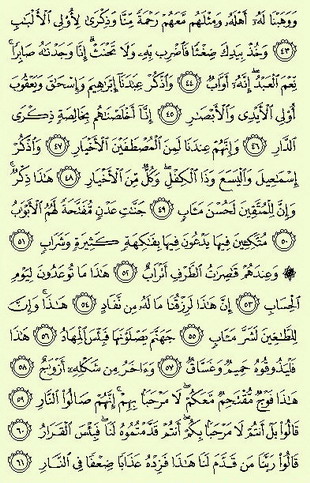 وَوَهَبْنَا لَهُۥٓ أَهْلَهُۥ وَمِثْلَهُم مَّعَهُمْ رَحْمَةً مِّنَّا وَذِكْرَىٰ لِأُو۟لِى ٱلْأَلْبَـٰبِ
﴿٤٣﴾ وَخُذْ بِيَدِكَ ضِغْثًا فَٱضْرِب بِّهِۦ وَلَا تَحْنَثْ ۗ إِنَّا وَجَدْنَـٰهُ صَابِرًا ۚ
نِّعْمَ ٱلْعَبْدُ ۖ إِنَّهُۥٓ أَوَّابٌ ﴿٤٤﴾ وَٱذْكُرْ عِبَـٰدَنَآ إِبْرَٰهِيمَ وَإِسْحَـٰقَ وَيَعْقُوبَ
أُو۟لِى ٱلْأَيْدِى وَٱلْأَبْصَـٰرِ ﴿٤٥﴾ إِنَّآ أَخْلَصْنَـٰهُم بِخَالِصَةٍ ذِكْرَى
ٱلدَّارِ ﴿٤٦﴾ وَإِنَّهُمْ عِندَنَا لَمِنَ ٱلْمُصْطَفَيْنَ ٱلْأَخْيَارِ ﴿٤٧﴾ وَٱذْكُرْ
إِسْمَـٰعِيلَ وَٱلْيَسَعَ وَذَا ٱلْكِفْلِ ۖ وَكُلٌّ مِّنَ ٱلْأَخْيَارِ ﴿٤٨﴾ هَـٰذَا ذِكْرٌ ۚ
وَإِنَّ لِلْمُتَّقِينَ لَحُسْنَ مَـَٔابٍ ﴿٤٩﴾ جَنَّـٰتِ عَدْنٍ مُّفَتَّحَةً لَّهُمُ ٱلْأَبْوَٰبُ
﴿٥٠﴾ مُتَّكِـِٔينَ فِيهَا يَدْعُونَ فِيهَا بِفَـٰكِهَةٍ كَثِيرَةٍ وَشَرَابٍ ﴿٥١﴾
۞ وَعِندَهُمْ قَـٰصِرَٰتُ ٱلطَّرْفِ أَتْرَابٌ ﴿٥٢﴾ هَـٰذَا مَا تُوعَدُونَ لِيَوْمِ
ٱلْحِسَابِ ﴿٥٣﴾ إِنَّ هَـٰذَا لَرِزْقُنَا مَا لَهُۥ مِن نَّفَادٍ ﴿٥٤﴾ هَـٰذَا ۚ وَإِنَّ
لِلطَّـٰغِينَ لَشَرَّ مَـَٔابٍ ﴿٥٥﴾ جَهَنَّمَ يَصْلَوْنَهَا فَبِئْسَ ٱلْمِهَادُ ﴿٥٦﴾ هَـٰذَا
فَلْيَذُوقُوهُ حَمِيمٌ وَغَسَّاقٌ ﴿٥٧﴾ وَءَاخَرُ مِن شَكْلِهِۦٓ أَزْوَٰجٌ ﴿٥٨﴾
هَـٰذَا فَوْجٌ مُّقْتَحِمٌ مَّعَكُمْ ۖ لَا مَرْحَبًۢا بِهِمْ ۚ إِنَّهُمْ صَالُوا۟ ٱلنَّارِ ﴿٥٩﴾
قَالُوا۟ بَلْ أَنتُمْ لَا مَرْحَبًۢا بِكُمْ ۖ أَنتُمْ قَدَّمْتُمُوهُ لَنَا ۖ فَبِئْسَ ٱلْقَرَارُ ﴿٦٠﴾
قَالُوا۟ رَبَّنَا مَن قَدَّمَ لَنَا هَـٰذَا فَزِدْهُ عَذَابًا ضِعْفًا فِى ٱلنَّارِ ﴿٦١﴾